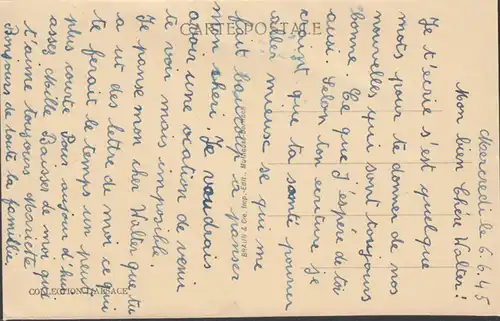 CARTE POSTALE
Mercredi le 6.6.45
Mon bien Chére Walter!
Je t'écrie s'est quelque
mots pour te donner de nos
nouvelles qui sont toujours
bonne Ce que J'espére de toi
ausi. Selon ton ecriture je
que ta santé pourra
aller mieuse se qui me
fait baucoup a penser
mon cheri. Je vaudrais
avoir une vocation de venir
te voir mais impoible.
Je panse mon cher Walter que tu
a ut des lettre de moi ce qui
te ferait le temps un peu
plus courte Pour aujour d'hui
assez Mille Baisser de moi qui
t'aime toujours Mariete
Bonjours de toute la famillie
BRAUN & Cie, Imp.-Édit., MULHOUSE-DORNACH
COLLECTION L'ALSACE